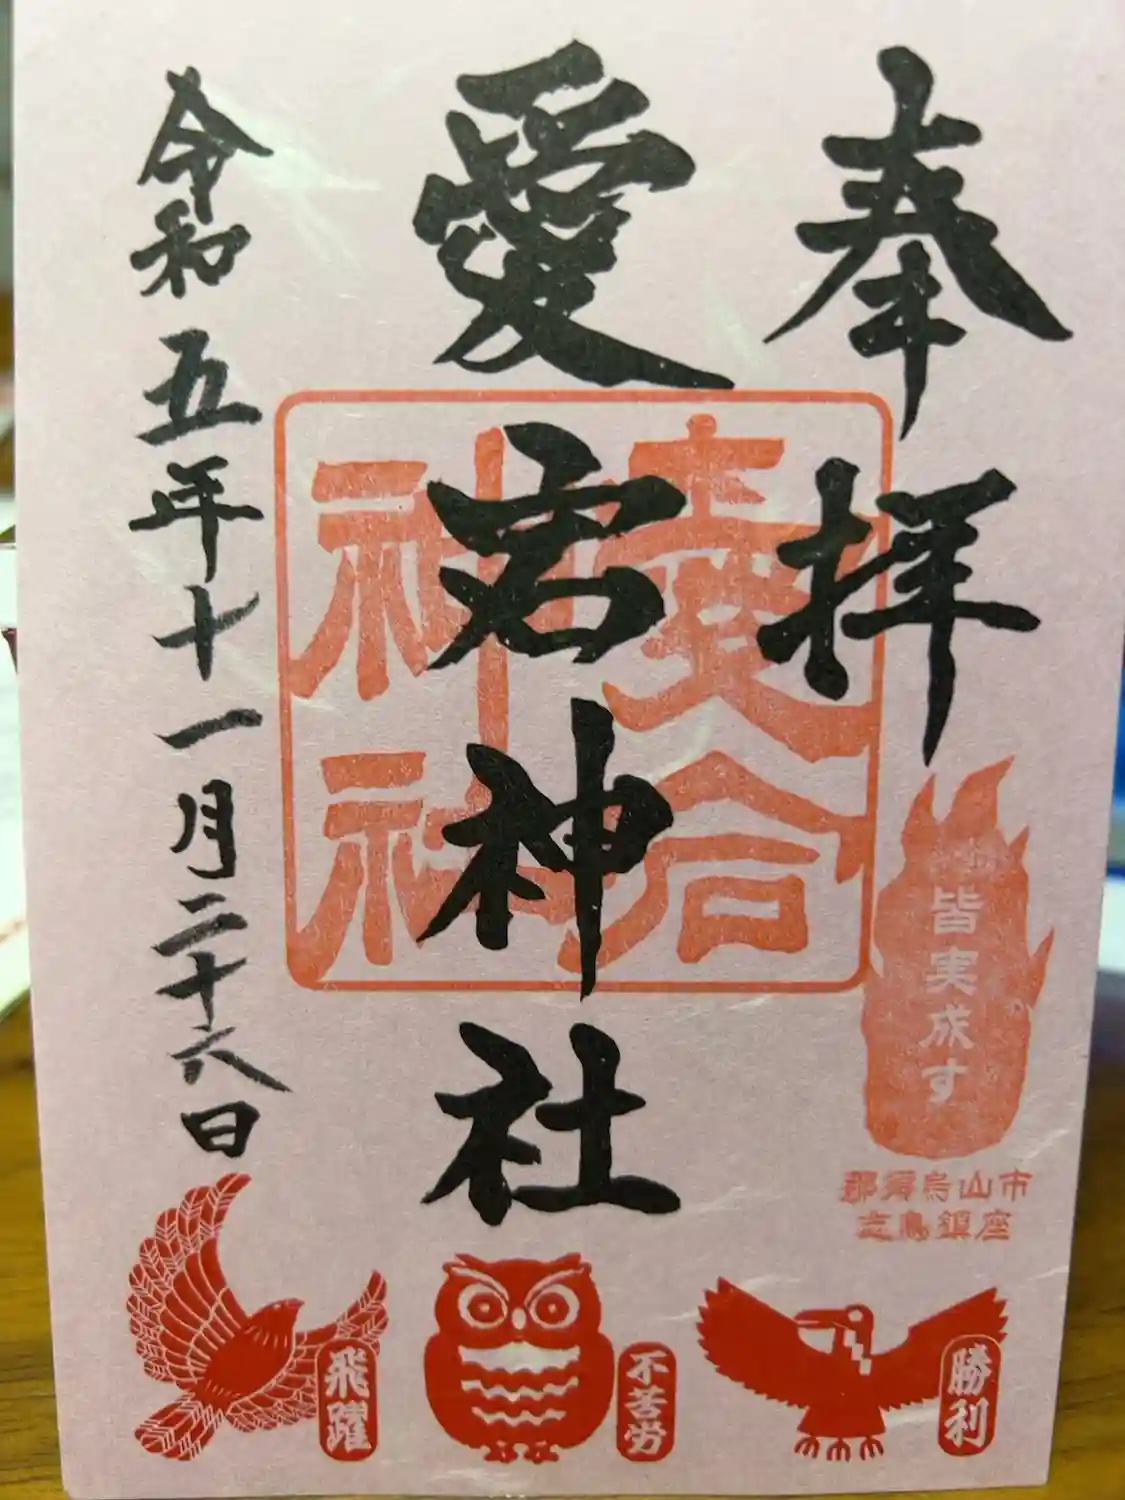 奉拝
愛宕神社
愛宕
神社
令和五年十一月二十六日
皆実成す
那須烏山市
志鳥鎮座
勝利
不苦労
飛躍